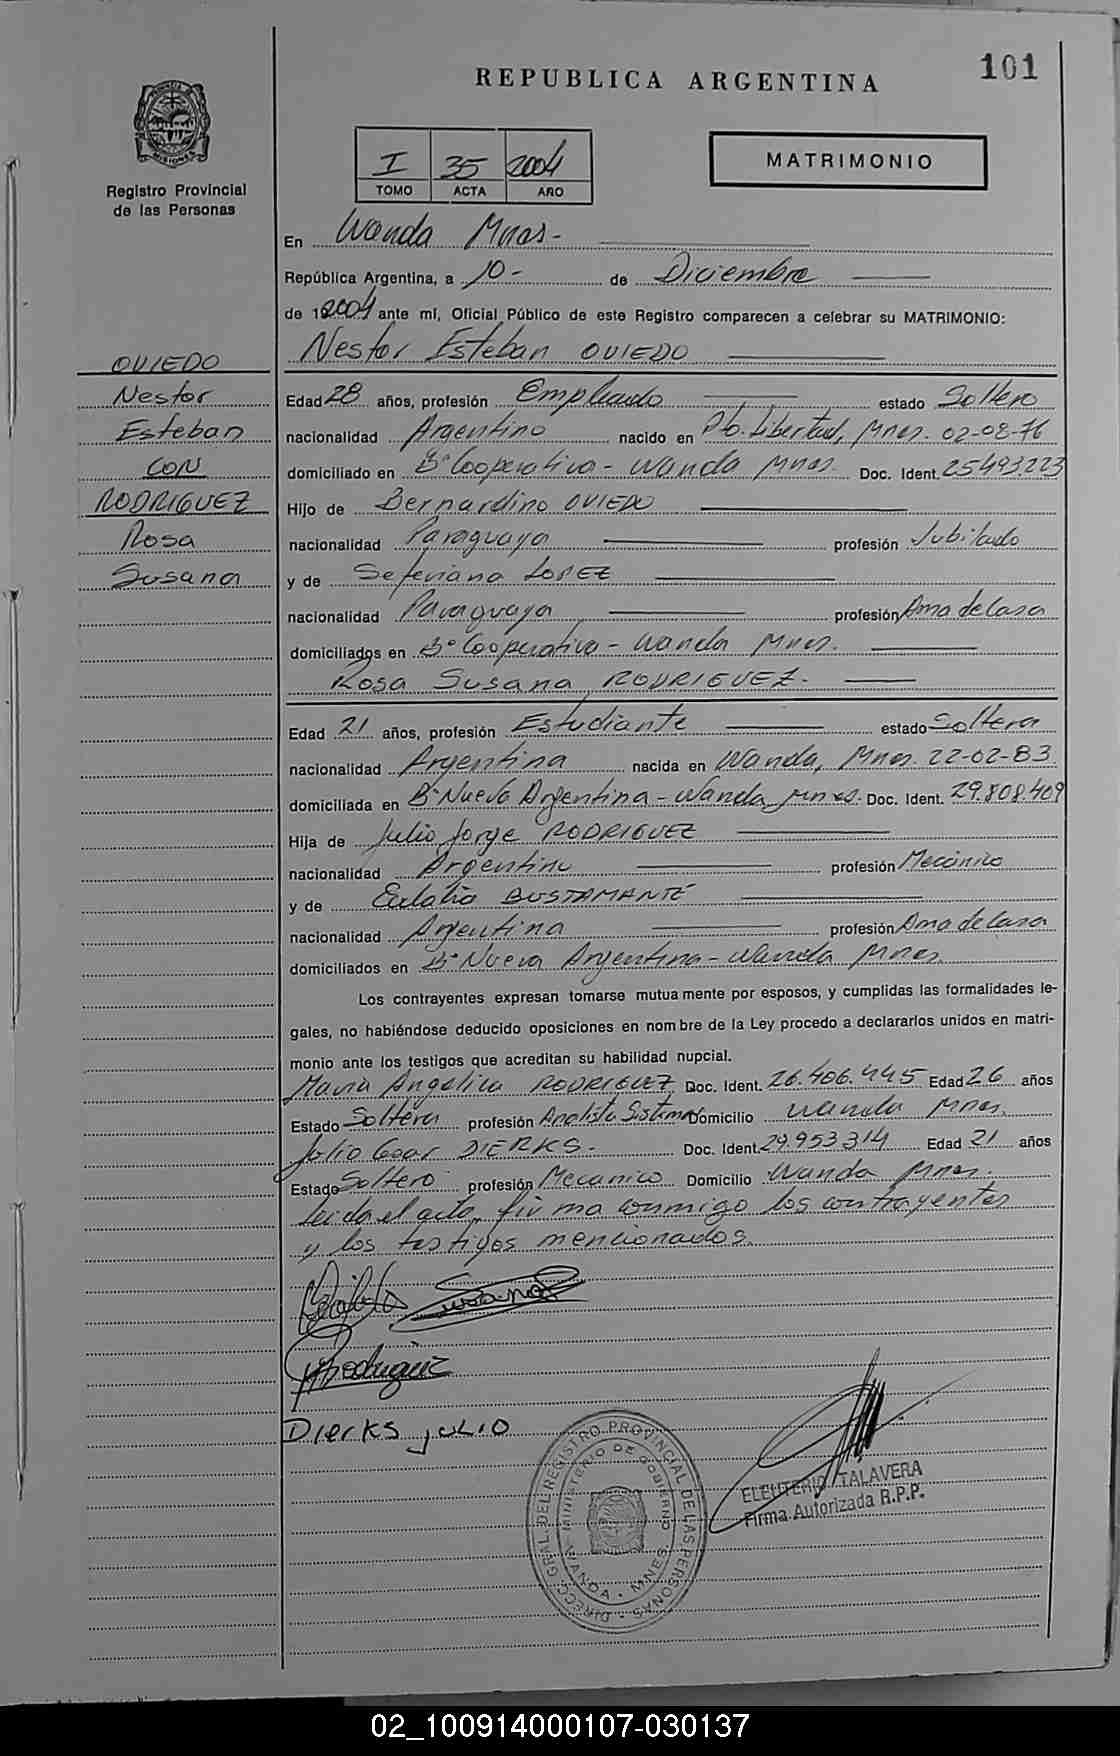 101
REPUBLICA ARGENTINA
PROVINCIA DE MISIONES
Registro Provincial
de las Personas
I 35 2004
TOMO ACTA AÑO
MATRIMONIO
En Wanda Mnes-
República Argentina, a 10- de Diciembre
de 2004 ante mí, Oficial Público de este Registro comparecen a celebrar su MATRIMONIO:
Nestor Esteban OVIEDO
OVIEDO
Nestor
Esteban
CON
RODRIGUEZ
Rosa
Susana
Edad 28 años, profesión Empleado estado Soltero
nacionalidad Argentino nacido en Pto. Libertad, Mnes. 02-08-76
domiciliado en B° Cooperativa - Wanda Mnes. Doc. Ident. 25493223
Hijo de Bernardino OVIEDO
nacionalidad Paraguaya profesión Jubilado
y de Seferiana LOPEZ
nacionalidad Paraguaya profesión Ama de Casa
domiciliados en B° Cooperativa - Wanda Mnes.
Rosa Susana RODRIGUEZ.
Edad 21 años, profesión Estudiante estado Soltera
nacionalidad Argentina nacida en Wanda, Mnes. 22-02-83
domiciliada en B° Nueva Argentina - Wanda Mnes. Doc. Ident. 29.808.409
Hija de Julio Jorge RODRIGUEZ
nacionalidad Argentino profesión Mecánico
y de Eulalia BUSTAMANTE
nacionalidad Argentina profesión Ama de Casa
domiciliados en B° Nueva Argentina - Wanda Mnes.
Los contrayentes expresan tomarse mutuamente por esposos, y cumplidas las formalidades le-
gales, no habiéndose deducido oposiciones en nombre de la Ley procedo a declararlos unidos en matri-
monio ante los testigos que acreditan su habilidad nupcial.
Maria Angelica RODRIGUEZ Doc. Ident. 26.406.445 Edad 26 años
Estado Soltera profesión Analista Sistema Domicilio Wanda Mnes.
Julio Cesar DIERKS. Doc. Ident. 29.953.314 Edad 21 años
Estado Soltero profesión Mecanico Domicilio Wanda Mnes.
Leida el acta, firma conmigo los contrayentes
y los testigos mencionados.
Susana
Rodriguez
Dierks juLIO
DIRECC. GRAL. DEL REGISTRO PROVINCIAL DE LAS PERSONAS
MINISTERIO DE GOBIERNO
WANDA - MNES.
ELEUTERIO TALAVERA
Firma Autorizada R.P.P.
02_100914000107-030137